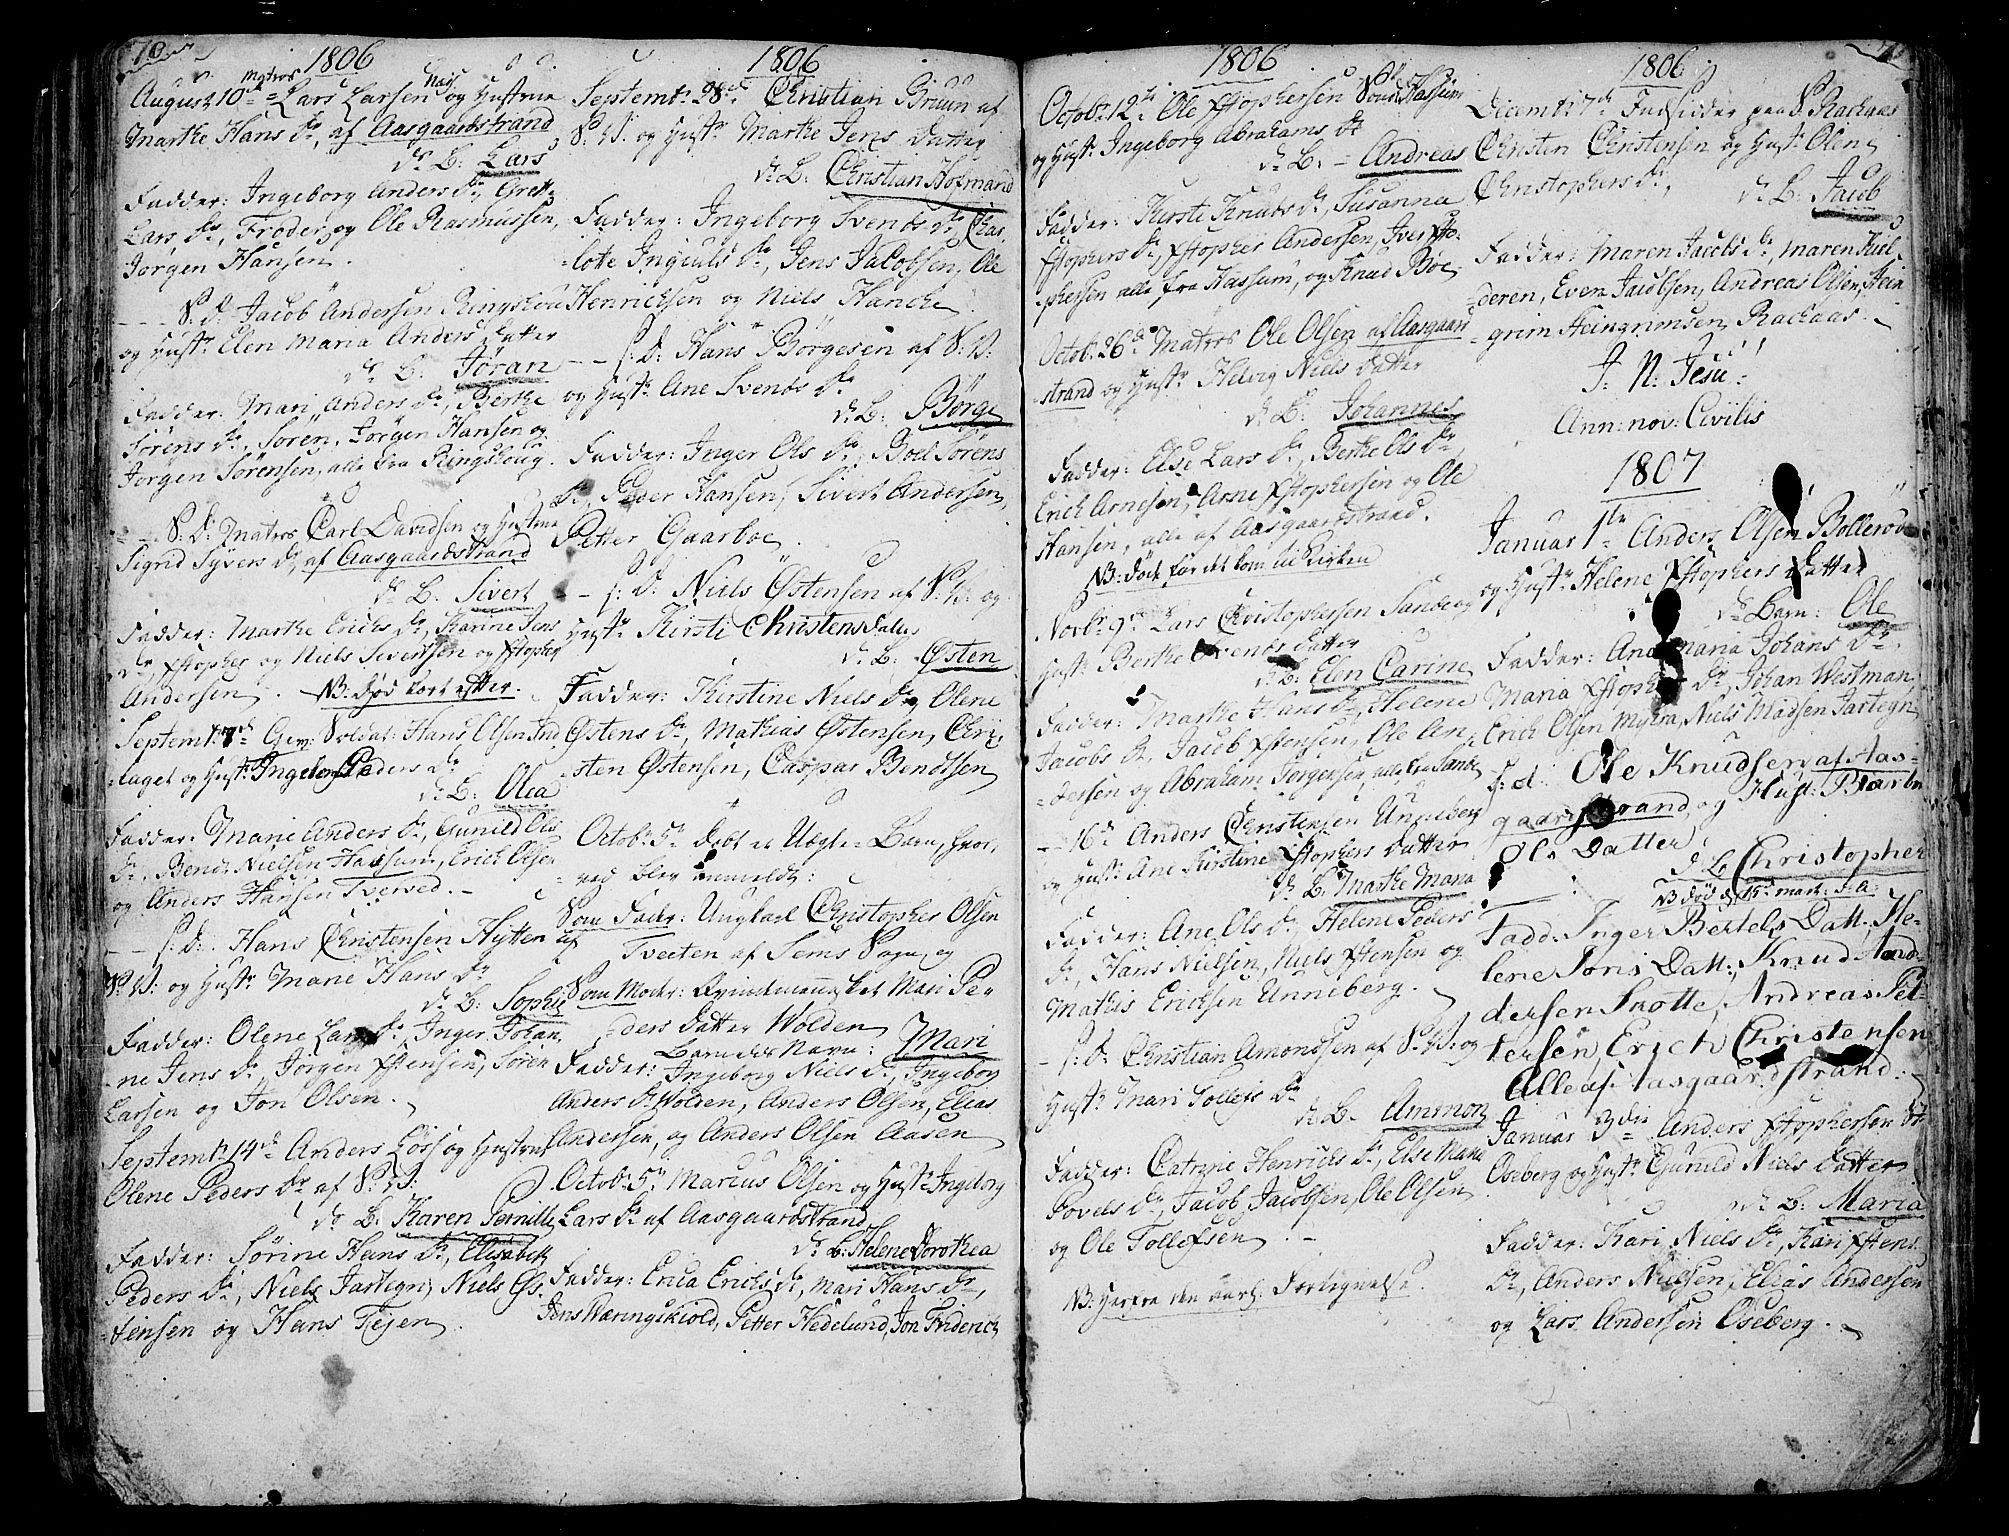 70
1806
August 10de Matros Lars Larsen Næs og Hustrue
Marthe Hans Dr, af Aasgaardstrand
dr B: Lars
Fadder: Ingeborg Anders Dr, Grethe
Lars Dr, Froder, og Ole Rasmussen,
Jørgen Hansen.
S: D: Jacob Andersen Ringshou
og Hustr Elen Maria Anders Datter
dr B: Jøran
Fadder: Mari Anders Dr, Berthe
Sørens Dr, Søren, Jørgen Hansen og
Jørgen Sørensen, alle fra Ringshoug.
S: D: Matros Carl Davidsen og Hustrue
Sigrid Syvers Dr, af Aasgaardstrand
dr B. Sivert
Fadder: Marthe Erichs Dr, Karine Jens
Dr, Xstopher og Niels Sivertsen og Xstopher
Andersen. NB: død kort efter.
Septemt: 7de Gev: Soldat: Hans Olsen
og Hustr: Ingeborg Peders Dr
dr B: Olea
Fadder: Marie Anders Dr, Gunild Ols
Dr, Bendt Nielsen Hassum, Erich Olsen
og Anders Hansen Tveved.
S: D: Hans Christensen Hytten af
S: W: og Hustr Marie Hans Dr
dr B: Sophie
Fadder: Olene Lars Dr, Inger Johan,
ne Jens Dr Jørgen Xstensen, Søren
Larsen og Jon Olsen.
Septemt: 14de Anders Löss og Hustrue
Olene Peders Dr af S: W:
dr B: Karen Pernille
Fadder: Sørine Hans Dr, Elisabeth
Peders Dr, Niels Jartegn, Niels Chr.
stensen og Hans Tejen.
1806
Septemt: 28de Christian Bruun af
S: W: og Hustr Marthe Jens Datter
dr B: Christian Hofmand
Fadder: Ingeborg Svends Dr, Char,
lote Dr, Jens Jacobsen, Ole
Henrichsen og Niels Hancke.
S: D: Hans Börgesen af S: W:
og Hustr Ane Svends Dr
dr B: Börge
Fadder: Inger Ols Dr, Boel Sörens
Dr, Peder Hansen, Sivert Andersen,
Petter Gaarboe.
S: D: Niels Østensen af S: W: og
Hustr Kirsti Christens Datter
dr B: Østen
Fadder: Kirstine Niels Dr, Olene
Østens Dr, Mathias Østensen, Chri,
sten Østensen, Caspar Bendtsen
Octob: 5te Døbt et Uægte Barn, hvor,
ved blev anmeldt:
Som Fader: Ungkarl Christopher Olsen
Tveeten af Sems Sogn, og
Som Moder: Qvindemennisket Mari Pe,
ders Datter Wolden
Barnets Navn: Mari
Fadder: Ingeborg Niels Dr, Ingeborg
Anders Dr Wolden, Anders Olsen, Elias
Andersen, og Anders Olsen Aasen
Octob: 5te Marcus Olsen og Hustr Ingeborg
Lars Dr af Aasgaardstrand
dr B: Helene Dorothea
Fadder: Erica Erichs Dr, Mari Hans Dr,
Jens Wæringskiold, Petter Hedelund, Jon Friderich
1806
Octob: 12te Ole Xstophersen Hassum
og Hustr Ingeborg Abrahams Dr
dr B: Andreas
Fadder: Kirste Knuds Dr, Susanna
Xstophers Dr, Xstopher Andersen, Iver Xsto,
phersen alle fra Hassum, og Knud Böe
Octob: 26de Matros Ole Olsen af Aasgaard
strand og Hustr Helvig Niels Datter
dr B: Johannes
Fadder: Else Lars Dr, Berthe Ols Dr,
Erich Arnesen, Arne Xstophersen og Ole
Hansen, alle af Aasgaardstrand.
NB: död før det kom til Kirken
Novbr 9de Lars Christophersen Sande og
Hustr Berthe Svends Datter
dr B: Elen Carine
Fadder: Marthe Hans Dr, Helene
Jacobs Dr, Jacob Xstensen, Ole An,
dersen og Abraham Jørgensen, alle fra Sande
16de Anders Christensen Unneberg
og Hustr Ane Kirstine Xstophers Datter
dr B: Marthe Maria
Fadder: Ane Ols Dr, Helene Peders
Dr, Hans Nielsen, Niels Xstensen og
Mathis Erichsen Unneberg.
S: D: Christian Amondsen af S: W: og
Hustr Mari Tollefs Dr
dr B. Ammon
Fadder: Catrine Henrichs Dr, Else Maria
Povels Dr, Jacob Jacobsen, Ole Olsen
og Ole Tollefsen.
NB: herfra den aarl: Fortegnelse.
1806
Decemt: 7de Indsidder paa Rachaas
Christen Christensen og Hustr Olene
Christophers Dr,
dr B: Jacob
Fadder: Maren Jacobs Dr, Maren Kiel,
deren, Even Jacobsen, Andreas Olsen, Stein
grim Steingrimsen Rachaas.
I: N: Jesu:
Ann: nov: Civilis
1807
Januar 1te Anders Olsen Bolleröd
og Hustr Helene Xstophers Datter
dr Barn: Ole
Fadder: Ane Maria Johans Dr,
Maria Xstophers Dr, Johan Westman,
Erich Olsen Myhra, Niels Madsen Jartegn
S: d: Ole Knudsen af Aas-
gaardstrand og Hust: Barbra
Ols Datter
d B Christopher
NB död d. 15de mart: s: a:
Fadd: Inger Bertels Datt: He-
lene Joris Datt:, Knud And-
dersen Snotte, Andreas Pet-
tersen, Erich Christensen
Alle af Aasgaardstrand.
Januar 3die Anders Xstophersen
Oseberg og Hustr Gunild Niels Datter
dr B: Maria
Fadder: Kari Niels Dr, Kari Xstens
Dr, Anders Nielsen, Elias Andersen
og Lars Andersen Oseberg.